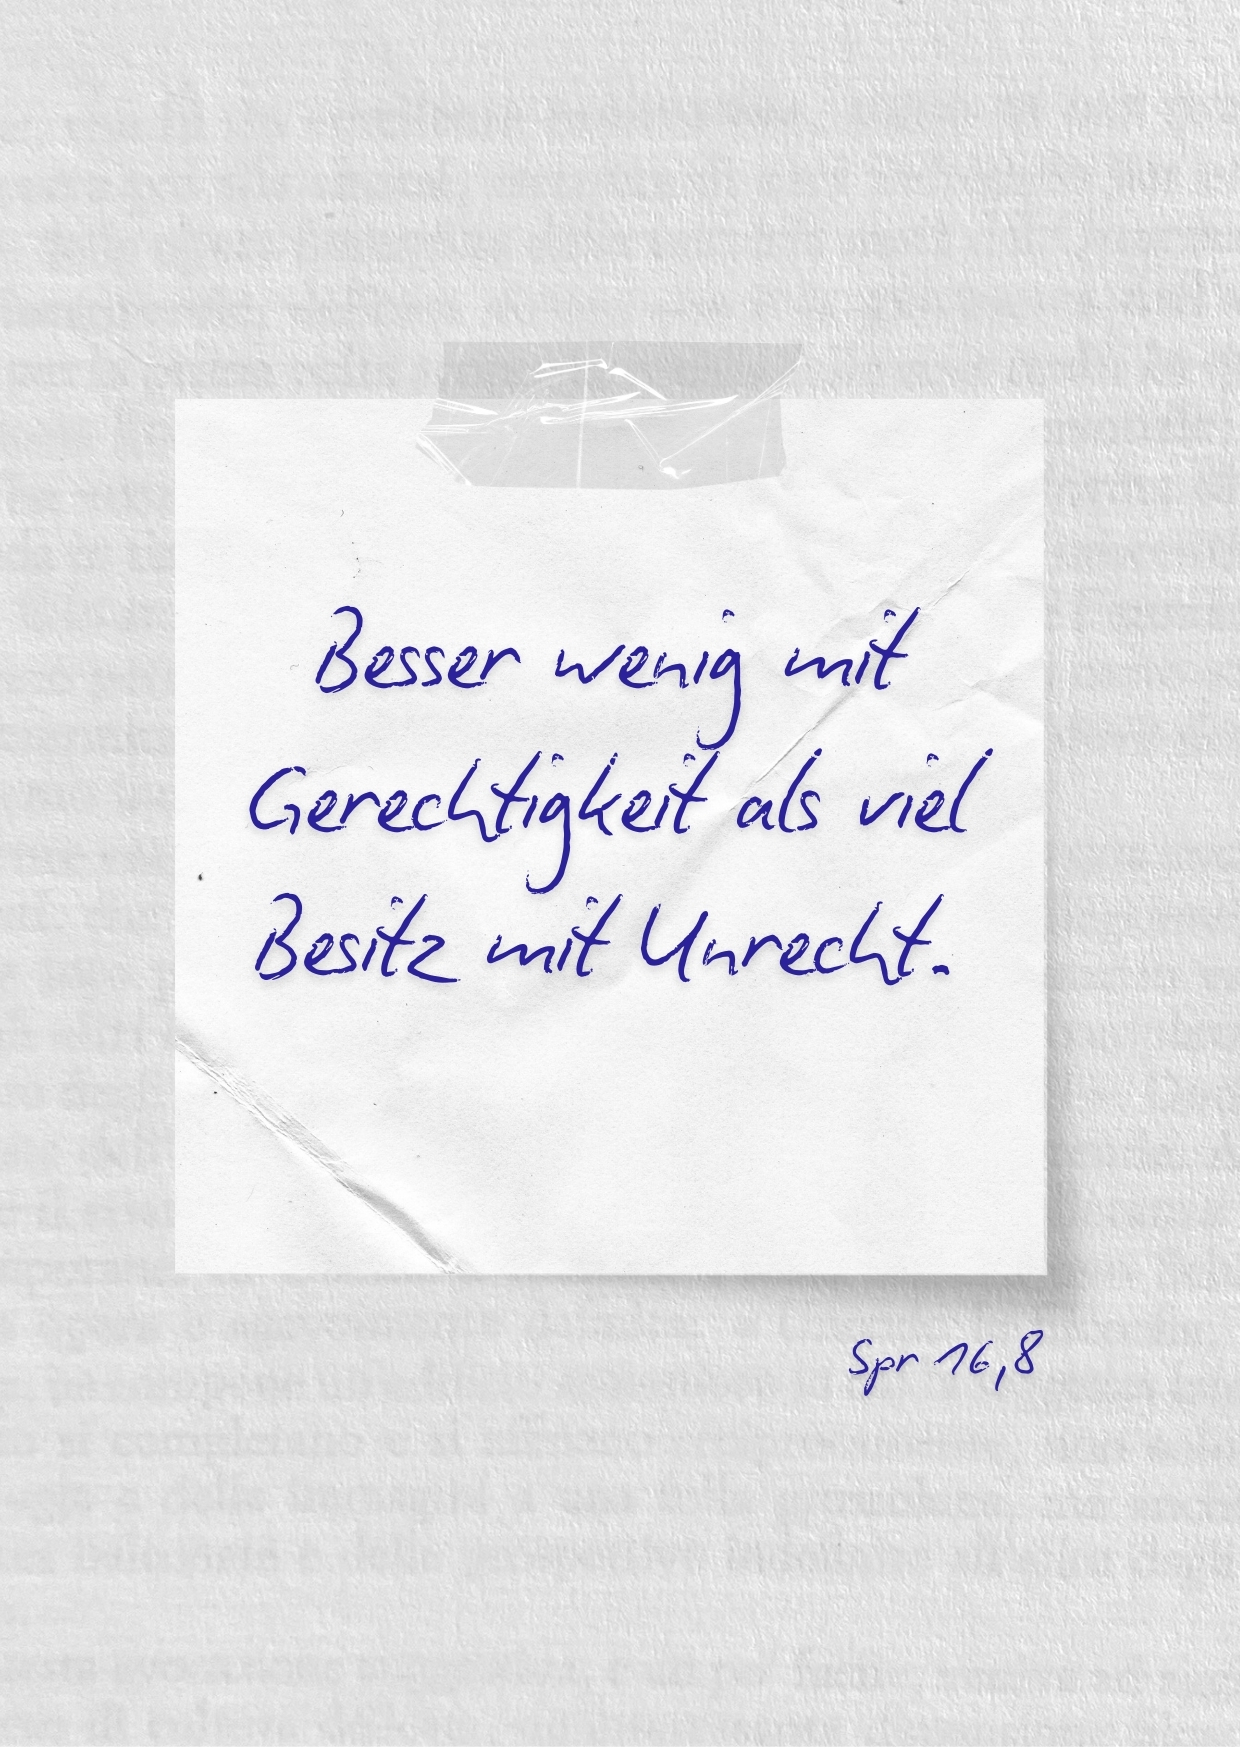 Besser wenig mit
Gerechtigkeit als viel
Besitz mit Unrecht.
Spr 16,8